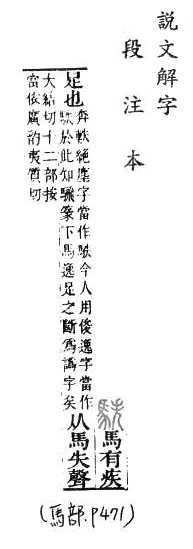 說文解字
段注本
䭿
馬有疾
足也
奔軼絕塵字當作䭿今人用俊逸字當作
䭿於此知䮾篆下馬逸足之斷爲譌字矣
从馬失聲
大結切十二部按
當依廣韵夷質切
(馬部.P471)